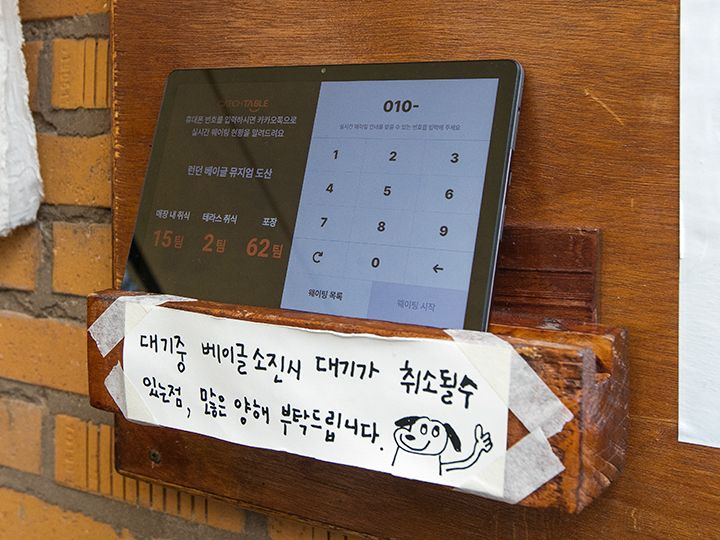 CATCHTABLE
휴대폰 번호를 입력하시면 카카오톡으로
실시간 웨이팅 현황을 알려드려요
런던 베이글 뮤지엄 도산
매장 내 취식 테라스 취식 포장
15팀 2팀 62팀
010-
실시간 웨이팅 안내를 받을 수 있는 번호를 입력해 주세요
1 2 3
4 5 6
7 8 9
0
웨이팅 목록 웨이팅 시작
대기중 베이글소진시 대기가 취소될수
있는점, 많은 양해 부탁드립니다.